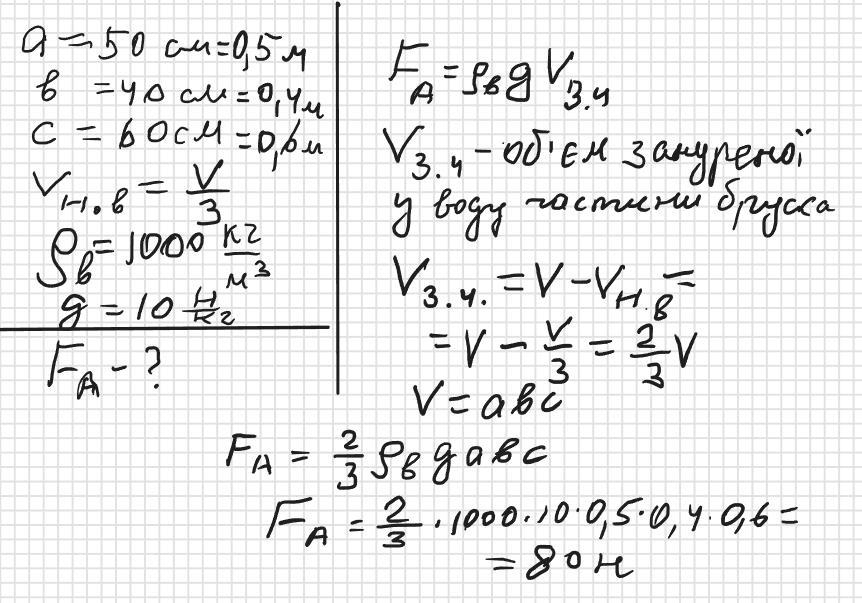 a = 50 см = 0,5 м
в = 40 см = 0,4 м
c = 60 см = 0,6 м
Vн.в = V/3
ρв = 1000 кг/м³
g = 10 Н/кг
FA - ?
FA = ρв g Vз.ч
Vз.ч - об'єм зануреної
у воду частини бруска
Vз.ч. = V - Vн.в =
= V - V/3 = 2/3 V
V = aвc
FA = 2/3 ρв g aвc
FA = 2/3 · 1000 · 10 · 0,5 · 0,4 · 0,6 =
= 80 н